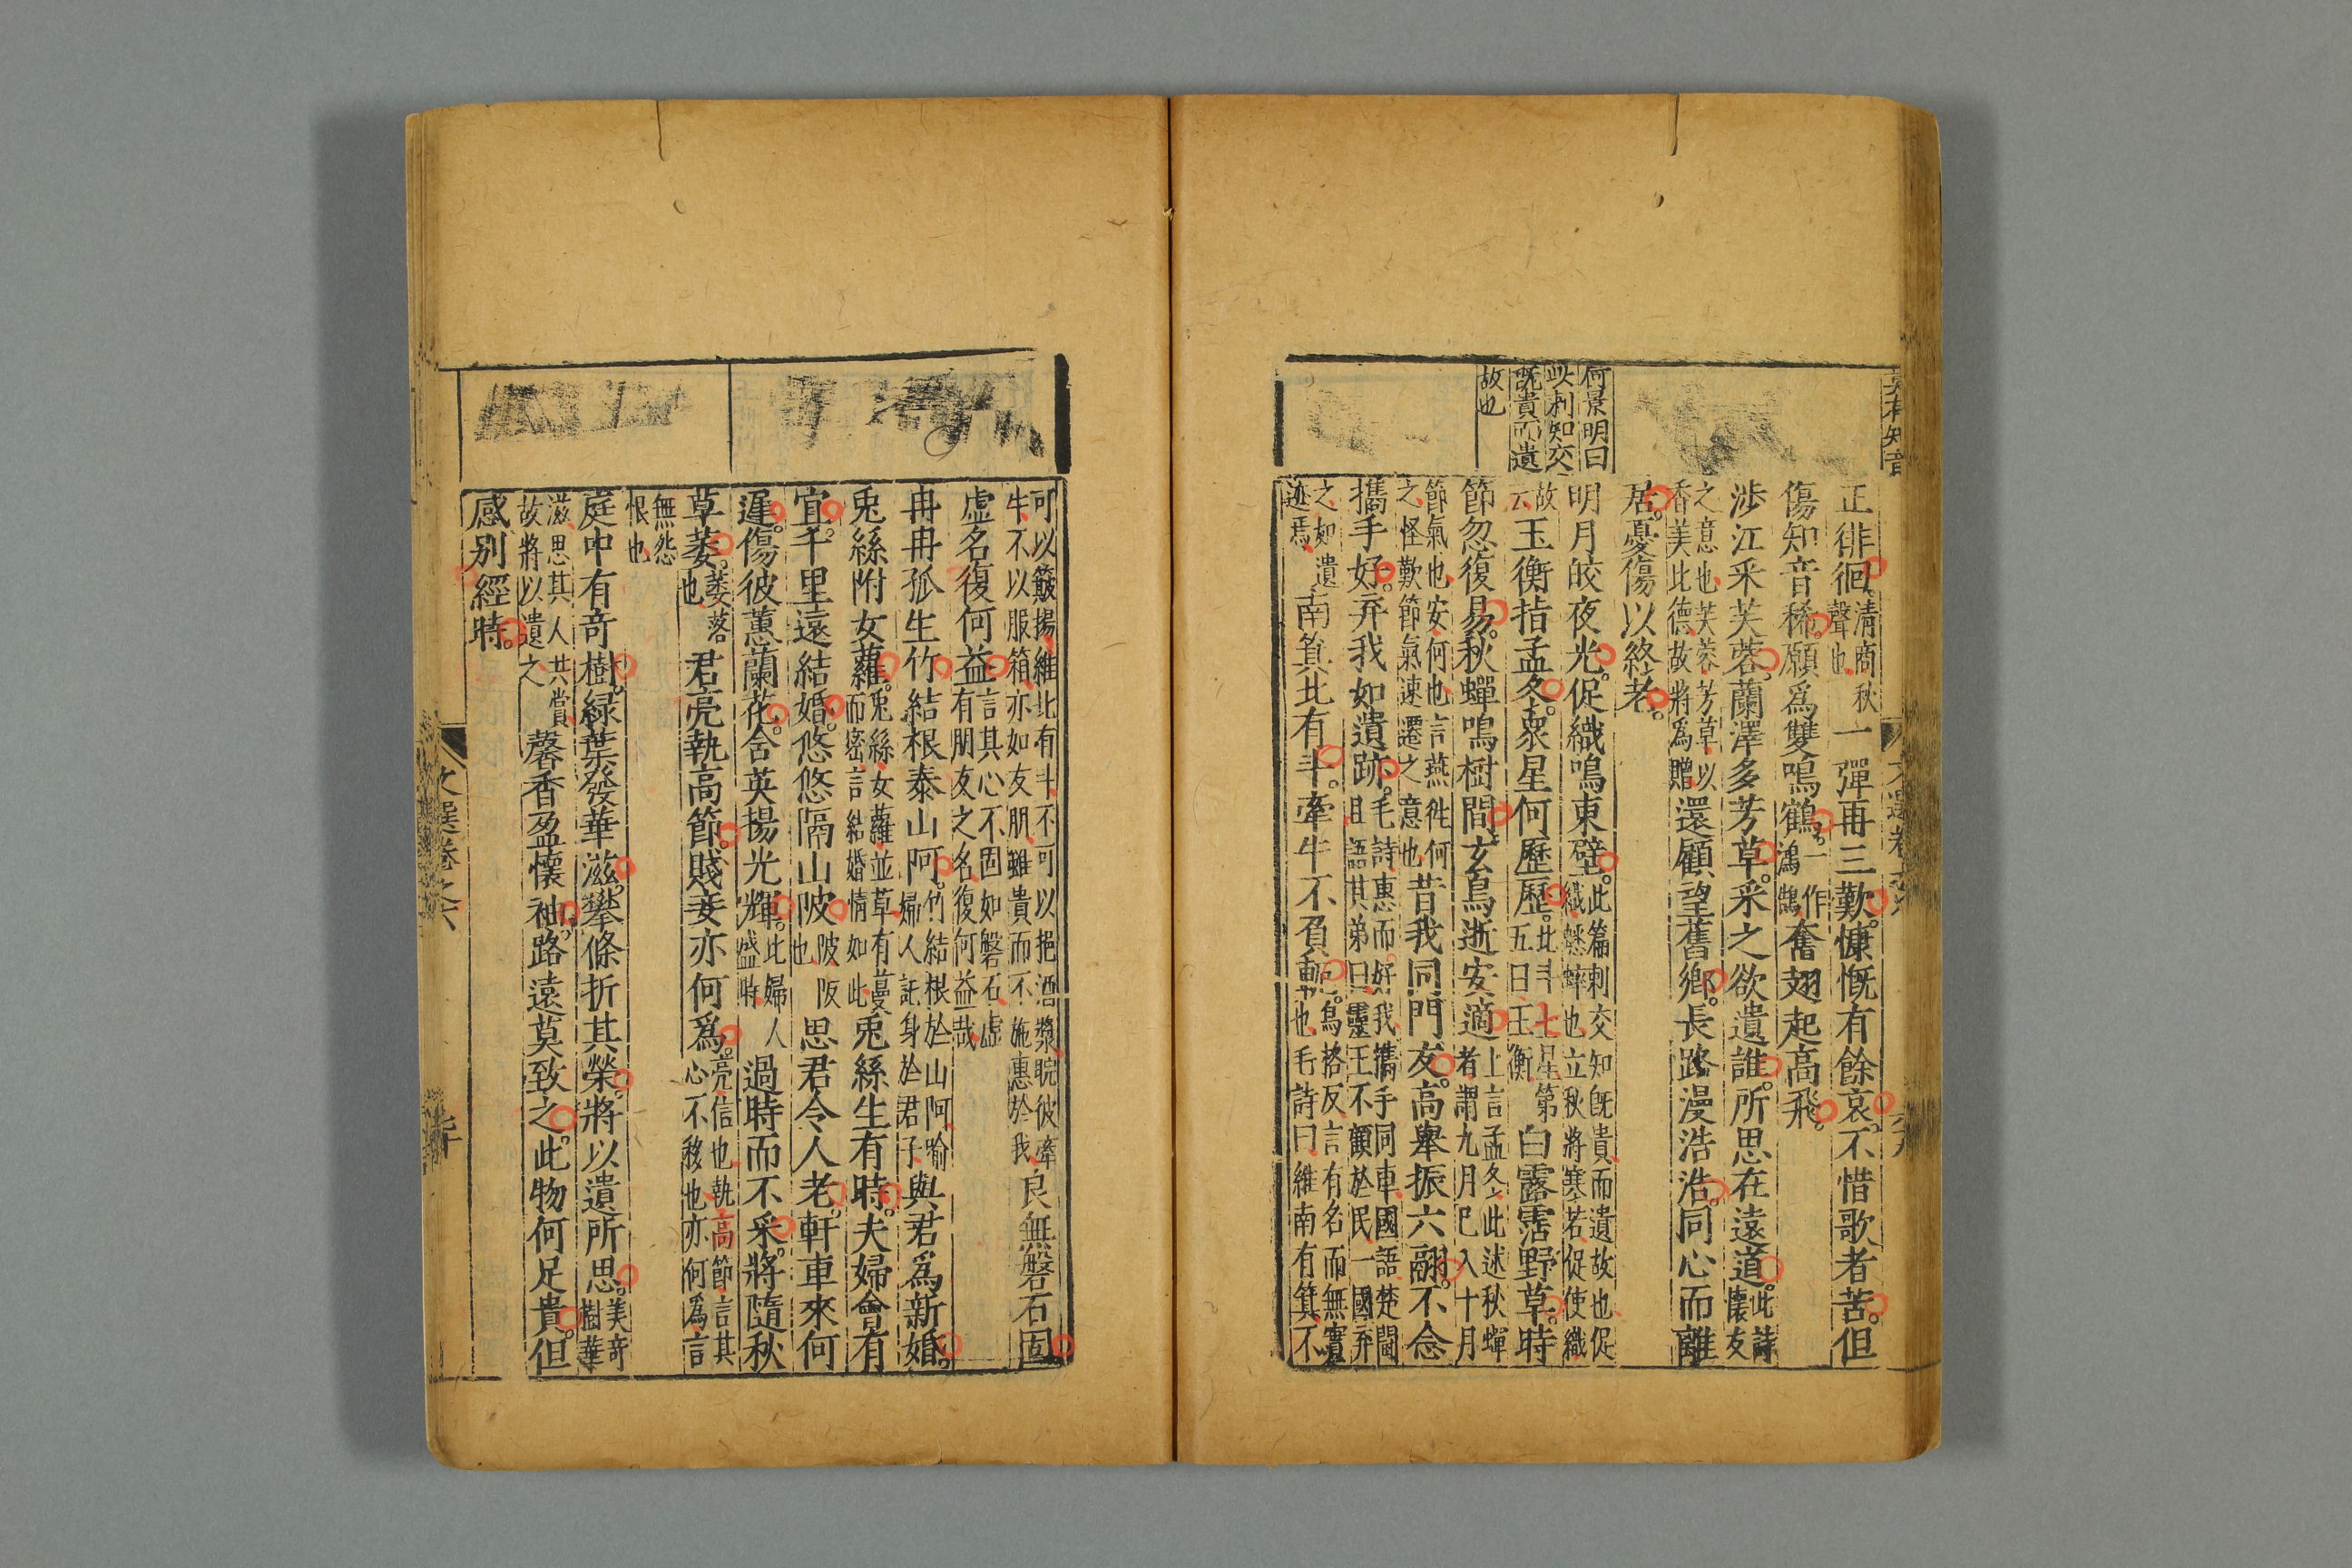 正徘徊清商秋聲也一彈再三歎慷慨有餘哀不惜歌者苦但
傷知音稀願爲雙鳴鶴一作鴻鵠奮翅起高飛
涉江采芙蓉蘭澤多芳草采之欲遺誰所思在遠道此詩懷友
之意也芙蓉芳草以香美比德故將爲贈還顧望舊鄉長路漫浩浩同心而離
居憂傷以終老
何景明曰
此刺知交
既貴而遺
故也
明月皎夜光促織鳴東壁此篇刺交知旣貴而遺故也促織蟋蟀也立秋將寒若促使織
故云玉衡指孟冬衆星何歷歷北斗七星第五曰玉衡白露霑野草時
節忽復易秋蟬鳴樹間玄鳥逝安適上言孟冬此述秋蟬者謂九月已入十月
節氣也安何也言燕徃何之怪歎節氣速遷之意也昔我同門友高舉振六翮不念
攜手好弃我如遺跡毛詩惠而好我攜手同車國語楚鬬且語其弟曰靈王不顧於民一國弃
之如遺迹焉南箕北有斗牽牛不負軛爲格反言有名而無實也毛詩曰維南有箕不
可以簸揚維北有斗不可以挹酒漿睆彼牽牛不以服箱亦如友朋雖貴而不施惠於我良無磐石固
虛名復何益言其心不固如磐石虛有朋友之名復何益哉
冉冉孤生竹結根泰山阿竹結根於山阿喻婦人託身於君子與君爲新婚
兎絲附女蘿兎絲女蘿並草有蔓而密言結婚情如此兎絲生有時夫婦會有
宜千里遠結婚悠悠隔山陂陂阪也思君令人老軒車來何
遲傷彼蕙蘭花含英揚光輝此婦人盛時過時而不采將隨秋
草萎萎落也君亮執高節賤妾亦何爲亮信也執高節言其心不移也亦何爲言
無怨恨也
庭中有奇樹綠葉發華滋攀條折其榮將以遺所思美奇樹華
滋思其人共賞故將以遺之馨香盈懷袖路遠莫致之此物何足貴但
感别經時
文選卷之六